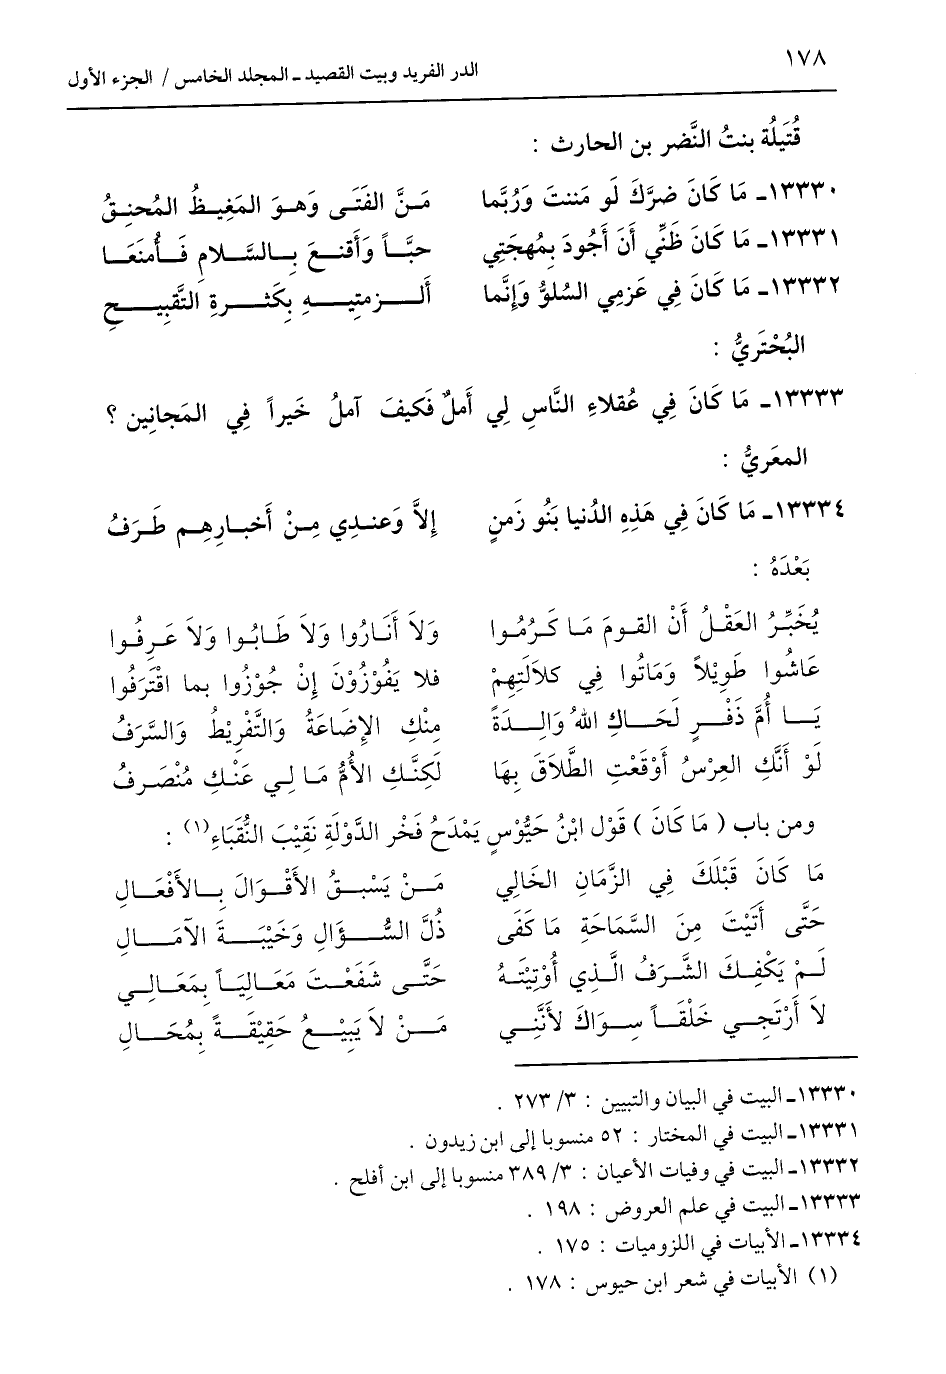 ١٧٨
الدر الفريد وبيت القصيد ـ المجلد الخامس / الجزء الأول
قُتَيلَة بنتُ النَّضر بن الحارث :
١٣٣٣٠ـ مَا كَانَ ضرَّكَ لَو مَننتَ وَرُبَّما مَـنَّ الفَتَـى وَهـوَ المَغِيـظُ المُحنِـقُ
١٣٣٣١ـ مَا كَانَ ظَنِّي أَنَ أَجُودَ بِمُهجَتِي حبَّـاً وَأَقنـعَ بِـالسَّـلامِ فَـأُمنَعَـا
١٣٣٣٢ـ مَا كَانَ فِي عَزمِي السُلوُّ وَإِنَّما أَلـزمتِيـهِ بِكَثـرةِ التَّقبِيـحِ
البُحْتَرِيُّ :
١٣٣٣٣ـ مَا كَانَ فِي عُقلاءِ النَّاسِ لِي أَملٌ فَكيفَ آملُ خَيراً فِي المَجانِين ؟
المعَريُّ :
١٣٣٣٤ـ مَا كَانَ فِي هَذِهِ الدُنيا بَنُو زَمنٍ إِلاَّ وَعنـدِي مِـنْ أَخبـارِهِـم طَـرَفُ
بَعْدَهُ :
يُخَبِّـرُ العَقْـلُ أَنْ القـومَ مَـا كَـرُمُـوا وَلاَ أَنَـارُوا وَلاَ طَـابُـوا وَلاَ عَـرِفُـوا
عَاشُوا طَوِيْلاً وَمَاتُوا فِي كلاَلَتِهِمْ فلا يَفُوْزُوْنَ إِنْ جُوْزُوا بما اقْتَرَفُوا
يَـا أُمَّ ذَفْـرٍ لَحَـاكِ اللهُ وَالِـدَةً مِنْكِ الإِضَاعَةُ وَالتَّفْرِيْطُ وَالسَّرَفُ
لَوْ أَنَّكِ العِرْسُ أَوْقَعْتِ الطَّلاَقَ بِهَا لَكِنَّـكِ الأُمُّ مَـا لِـي عَنْـكِ مُنْصَـرفُ
ومن باب ( مَا كَانَ ) قَوْل ابْنُ حَيُّوْسٍ يَمْدَحُ فَخْر الدَّوْلَةِ نَقِيْبَ النُّقَبَاءِ(١) :
مَا كَانَ قَبْلَكَ فِي الزَّمَانِ الخَالِي مَـنْ يَسْبِـقُ الأَقْـوَالَ بِـالأَفْعَـالِ
حَتَّى أَتَيْتَ مِنَ السَّمَاحَةِ مَا كَفَى ذُلَّ السُّـؤَالِ وَخَيْبَـةَ الآمَـالِ
لَـمْ يَكْفِـكَ الشَّرَفُ الَّـذِي أُوْتِيْتَـهُ حَتَّـى شَفَعْـتَ مَعَـالِيَـاً بِمَعَـالِـي
لاَ أَرْتَجِـي خَلْقَـاً سِـوَاكَ لأَنَّنِـي مَـنْ لاَ يَبِيْـعُ حَقِيْقَـةً بِمُحَـالِ
١٣٣٣٠ـ البيت في البيان والتبيين : ٣/ ٢٧٣ .
١٣٣٣١ـ البيت في المختار : ٥٢ منسوبا إلى ابن زيدون .
١٣٣٣٢ـ البيت في وفيات الأعيان : ٣/ ٣٨٩ منسوبا إلى ابن أفلح .
١٣٣٣٣ـ البيت في علم العروض : ١٩٨ .
١٣٣٣٤ـ الأبيات في اللزوميات : ١٧٥ .
(١) الأبيات في شعر ابن حيوس : ١٧٨ .